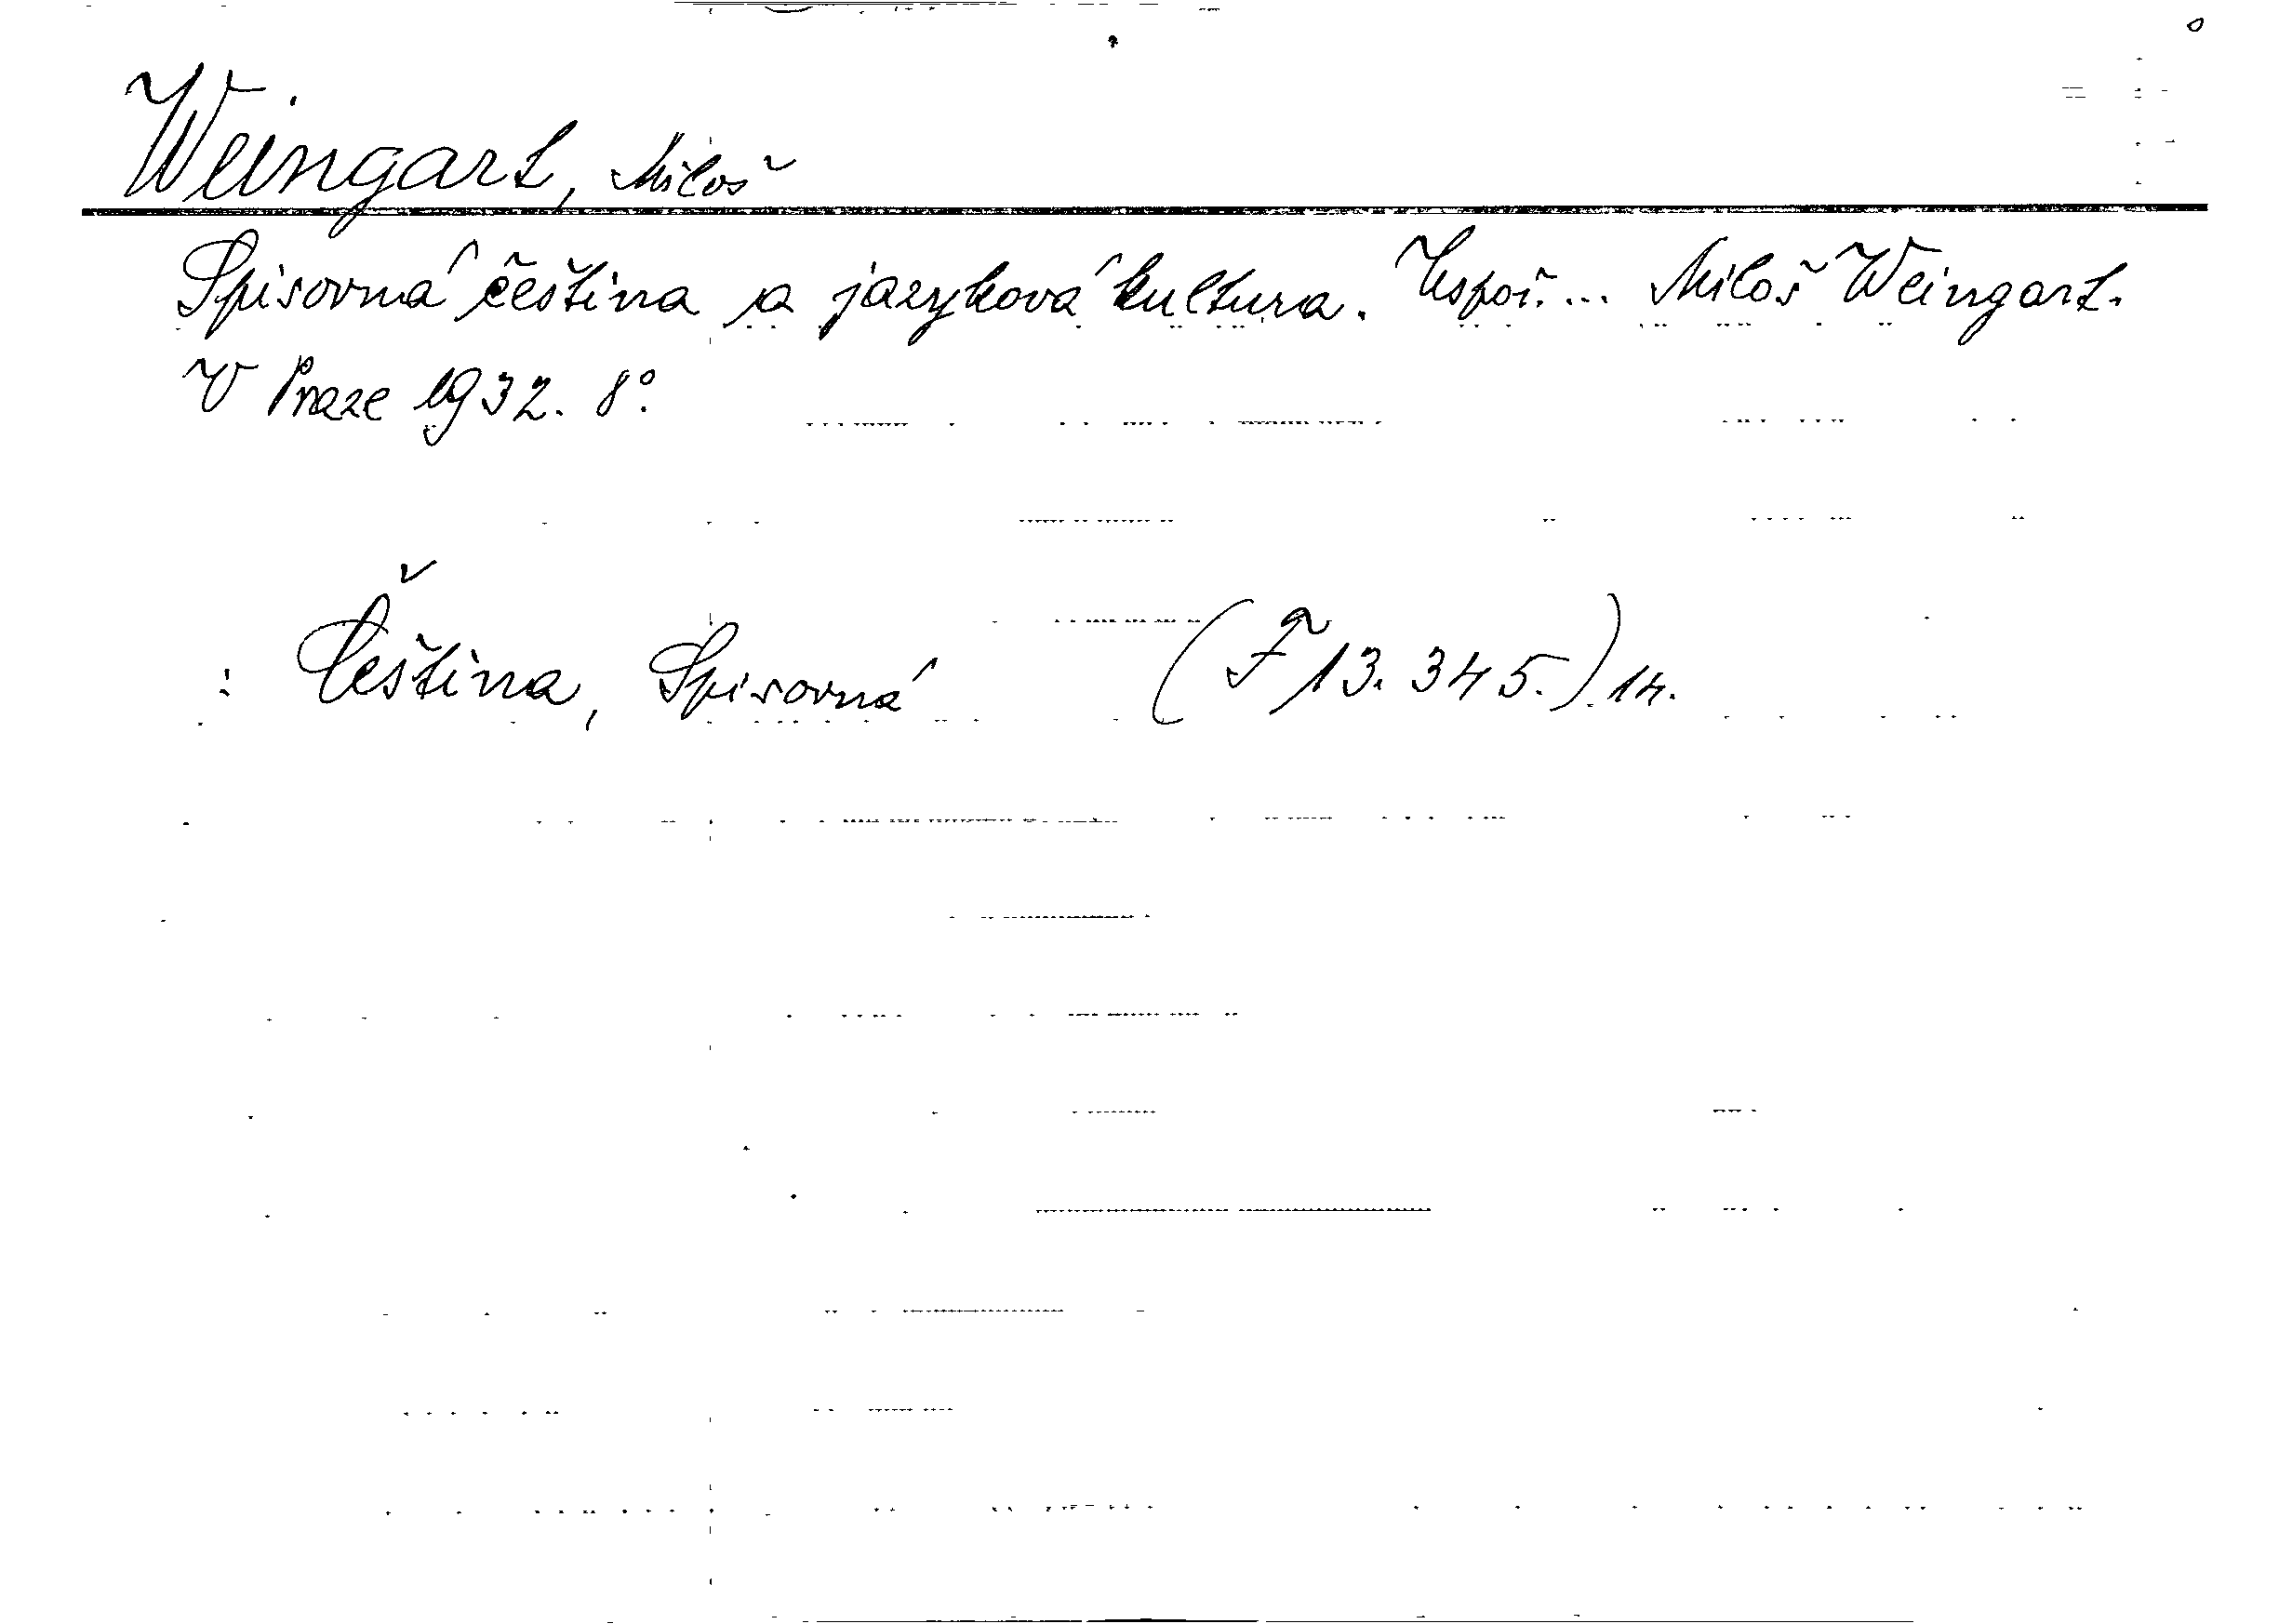 Weingart, Miloš
Spisovná čeština a jazyková kultura. Uspoř.... Miloš Weingart.
V Praze 1932. 8°.
: Čeština, Spisovná (F 13.345.) 14.